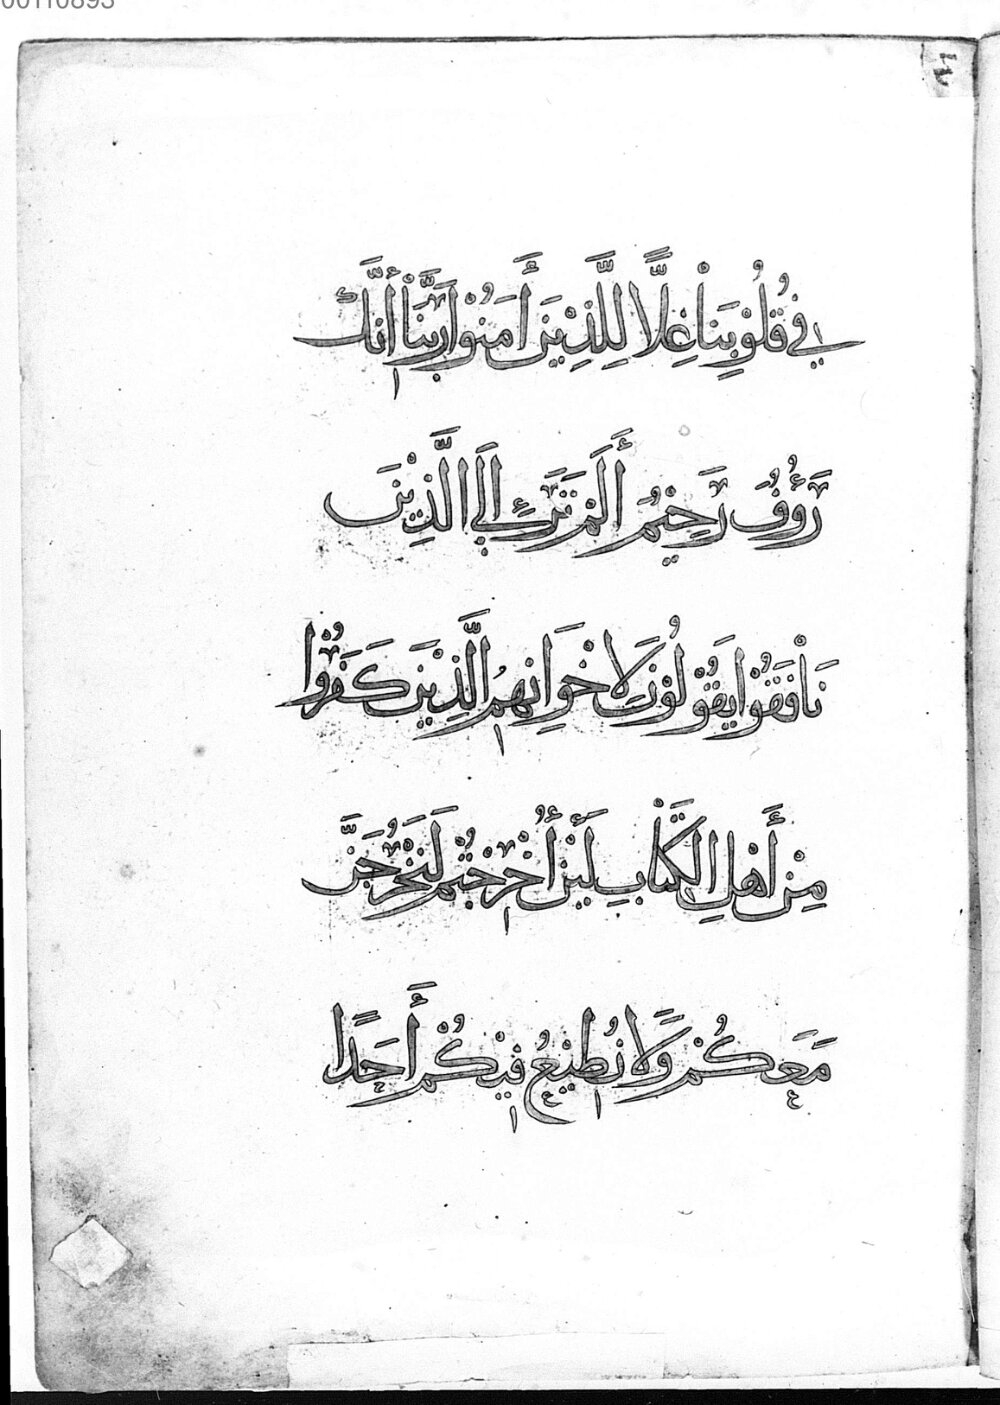 00110893
في قُلُوْبِنَاْ غِلًّا لِلَّذِيْنَ أَمَنُوْا رَبَّنَاْ أِنَّكَ
رَؤُفُ رَحِيْمٌ أَلَمْ تَرَ إِلَى الَّذِيْنَ
نَاْفَقُوْا يَقُوْلُوْنَ لِاخْوَانِهِمُ الَّذِيْنَ كَفَرُوْا
مِنْ أَهْلِ الْكِتَاْبِ لَئِنْ أُخْرِجْتُمْ لَنَخْرُجَنَّ
مَعَكُمْ وَلَا نُطِيْعُ فِيْكُمْ أَحَدًا